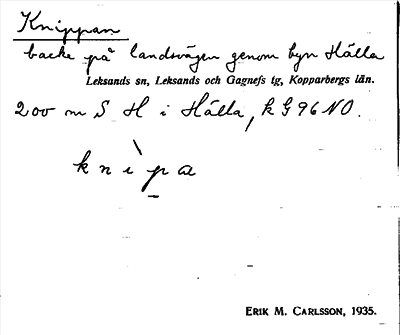 Knippan
backe på landsvägen genom byn Hälla
Leksands sn, Leksands och Gagnefs tg, Kopparbergs län.
200 m S H i Hälla, k G 96 NO.
knìpa
Erik M. Carlsson, 1935.